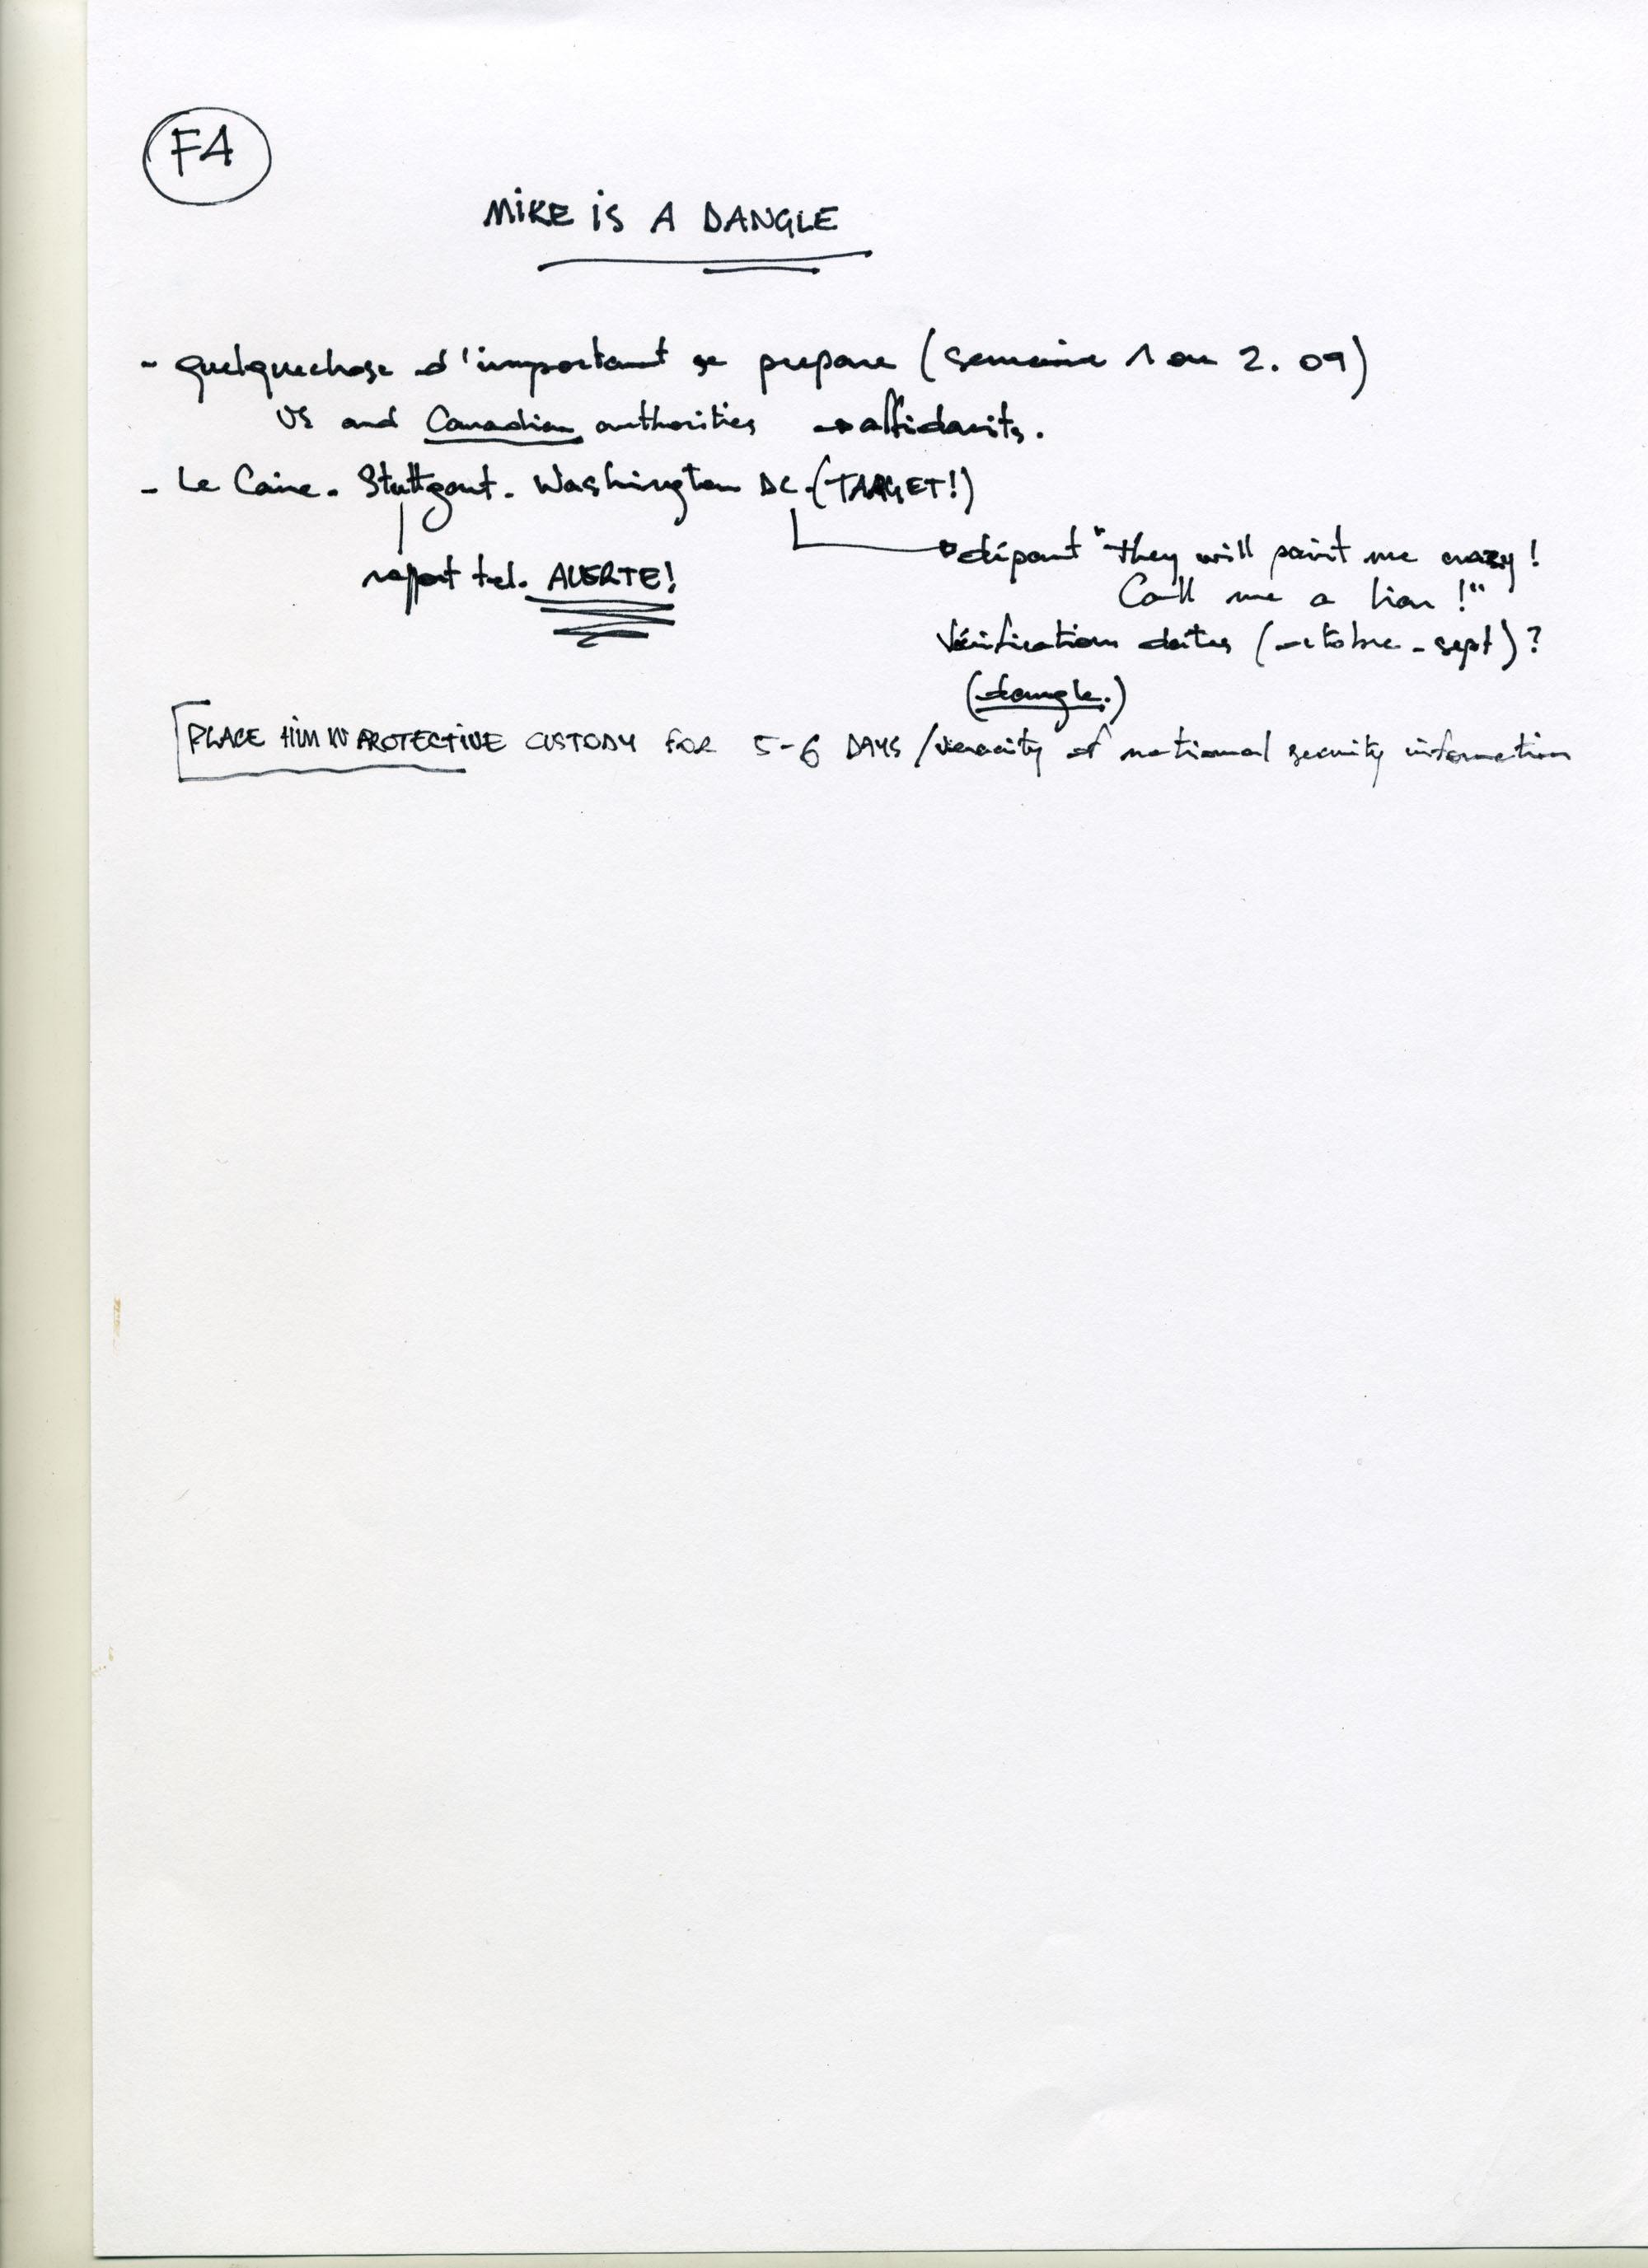 F4
MIKE IS A DANGLE
- quelquechose d'important se prepare (semaine 1 ou 2. 09)
US and Canadian authorities → affidavits.
- Le Caire. Stuttgart. Washington DC. (TARGET!)
départ "They will paint me crazy!
rapport tel. ALERTE!
Call me a liar!"
Vérification dates (octobre - sept)?
(dangle.)
PLACE HIM IN PROTECTIVE CUSTODY FOR 5-6 DAYS / veracity of national security information